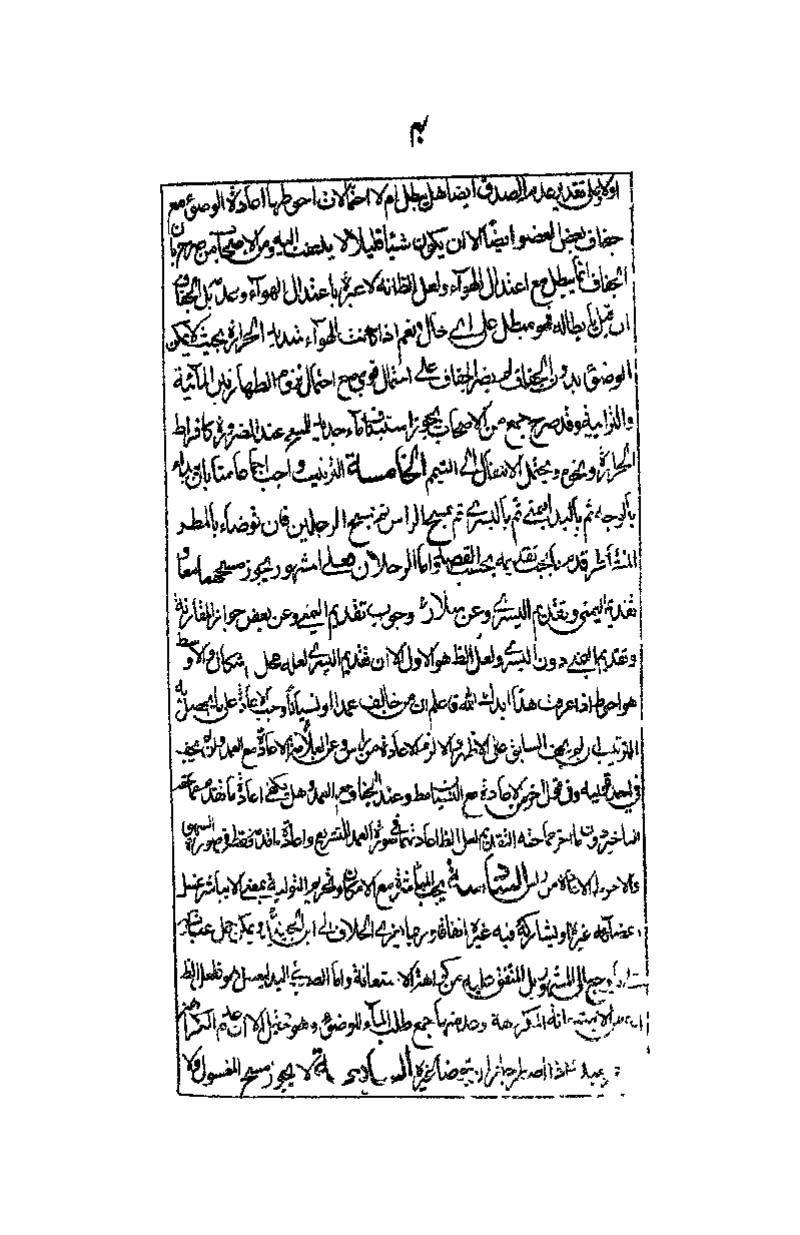 اولا وعلى تقدير عدم الصدق ايضا هل يبطل ام لا احتمالات احوطها اعادة الوضوء مع
جفاف بعض العضو ايضا الا ان يكون شيئا قليلا لا يلتفت اليه ومن الاصحاب من صرح بان
الجفاف انما يبطل مع اعتدال الهواء ولعل الظ انه لا عبرة باعتدال الهواء وعدمه بل الجفاف
ان قيل بابطاله فهو مبطل على اى حال نعم اذا كانت الهواء شديد الحرارة بحيث لا يمكن
الوضوء بدون الجفاف لم يضر الجفاف على احتمال قوى مع احتمال لزوم الطهارتين المائية
والترابية وقد صرح جمع من الاصحاب بجواز استيناف ماء جديد للمسح عند الضرورة كافراط
الحرارة ونحوه ويحتمل الانتقال الى التيمم الخامسة الترتيب واجب اجماعا منا بان يبداء
بالوجه ثم باليد اليمنى ثم باليسرى ثم بمسح الراس ثم بمسح الرجلين فان توضاء بالمطر
قدم ما يجب تقديمه بحسب القصد واما الرجلان فعلى المشهور يجوز مسحهما معا و
تقديم اليمنى وتقديم اليسرى وعن سلار وجوب تقديم اليمنى وعن بعض جواز المقارنة
وتقديم اليمنى دون اليسرى ولعل الظ هو الاول الا ان تقديم اليسرى لعله محل اشكال والاوسط
هو احوط اذا عرفت هذا ايدك الله فاعلم ان من خالف عمدا او نسيانا وجب الاعادة على ما يحصل به
الترتيب السابق على الاظهر والا لزم الاعادة من راس وعن العلامة الاعادة مع العمد وان لم يجف
فى احد قوليه وفى قول اخر الاعادة مع النسيان وعند الجفاف مع العمد وهل يكفى اعادة ما تقدم
التاخير دون ما اخر مما حقه التقديم لعل الظ اعادتهما فى صورة العمد للتشريع واعادة ما قدمه فقط فى صورة السهو
والاحوط الاعادة من راس السادسة يجب المباشرة مع الامكان وتحرم التولية بمعنى ان يباشر غسل
اعضائه غيره او يشاركه فيه غيره اتفاقا وربما يعزى الخلاف الى ابن الجنيد ويمكن حمل
المشهور بل المتفق عليه من كراهة الاستعانة واما الصب فى اليد ليغسل هو فلعل الظ
انه المكروهة وصرح بها جمع طلب الماء للوضوء وهو محتمل الا ان عدم الكراهة
غيره السابعة لا يجوز مسح المغسول ولا